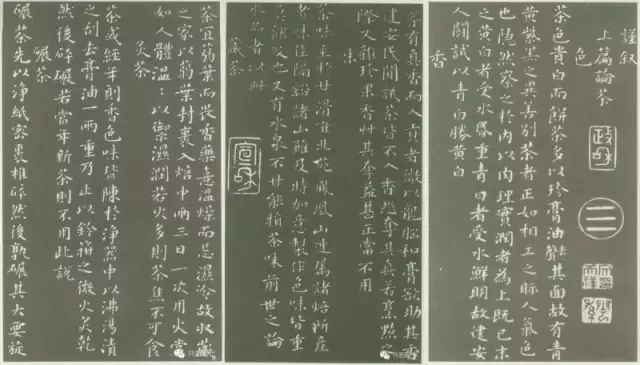 謹叙
上篇論茶
色
茶色貴白而餅茶多以珍膏油去聲其面故有青
黄紫黑之異善別茶者正如相工之眎人氣色
也隠然察之於内以肉理實潤者為上既已末
之黄白者受水昏重青白者受水鮮明故建安
人鬬試以青白勝黄白
香
政和
茶有真香而入貢者微以龍腦和膏欲助其香
建安民間試茶皆不入香恐奪其真若烹點之
際又雜珍果香艸其奪益甚正當不用
味
茶味主於甘滑惟北苑鳳凰山連屬諸焙所産
者味佳隔谿諸山雖及時加意製作色味皆重
莫能及也又有水泉不甘能損茶味前世之論
水品者以此
藏茶
宣和
茶宜蒻葉而畏香藥喜温燥而忌濕冷故收藏
之家以蒻葉封裹入焙中兩三日一次用火常
如人體温:以禦濕潤若火多則茶焦不可食
炙茶
茶或經年則香色味皆陳於淨器中以沸湯漬
之刮去膏油一兩重乃止以鈐箝之微火炙乾
然後碎碾若當年新茶則不用此說
碾茶
碾茶先以淨紙密裹椎碎然後熟碾其大要旋